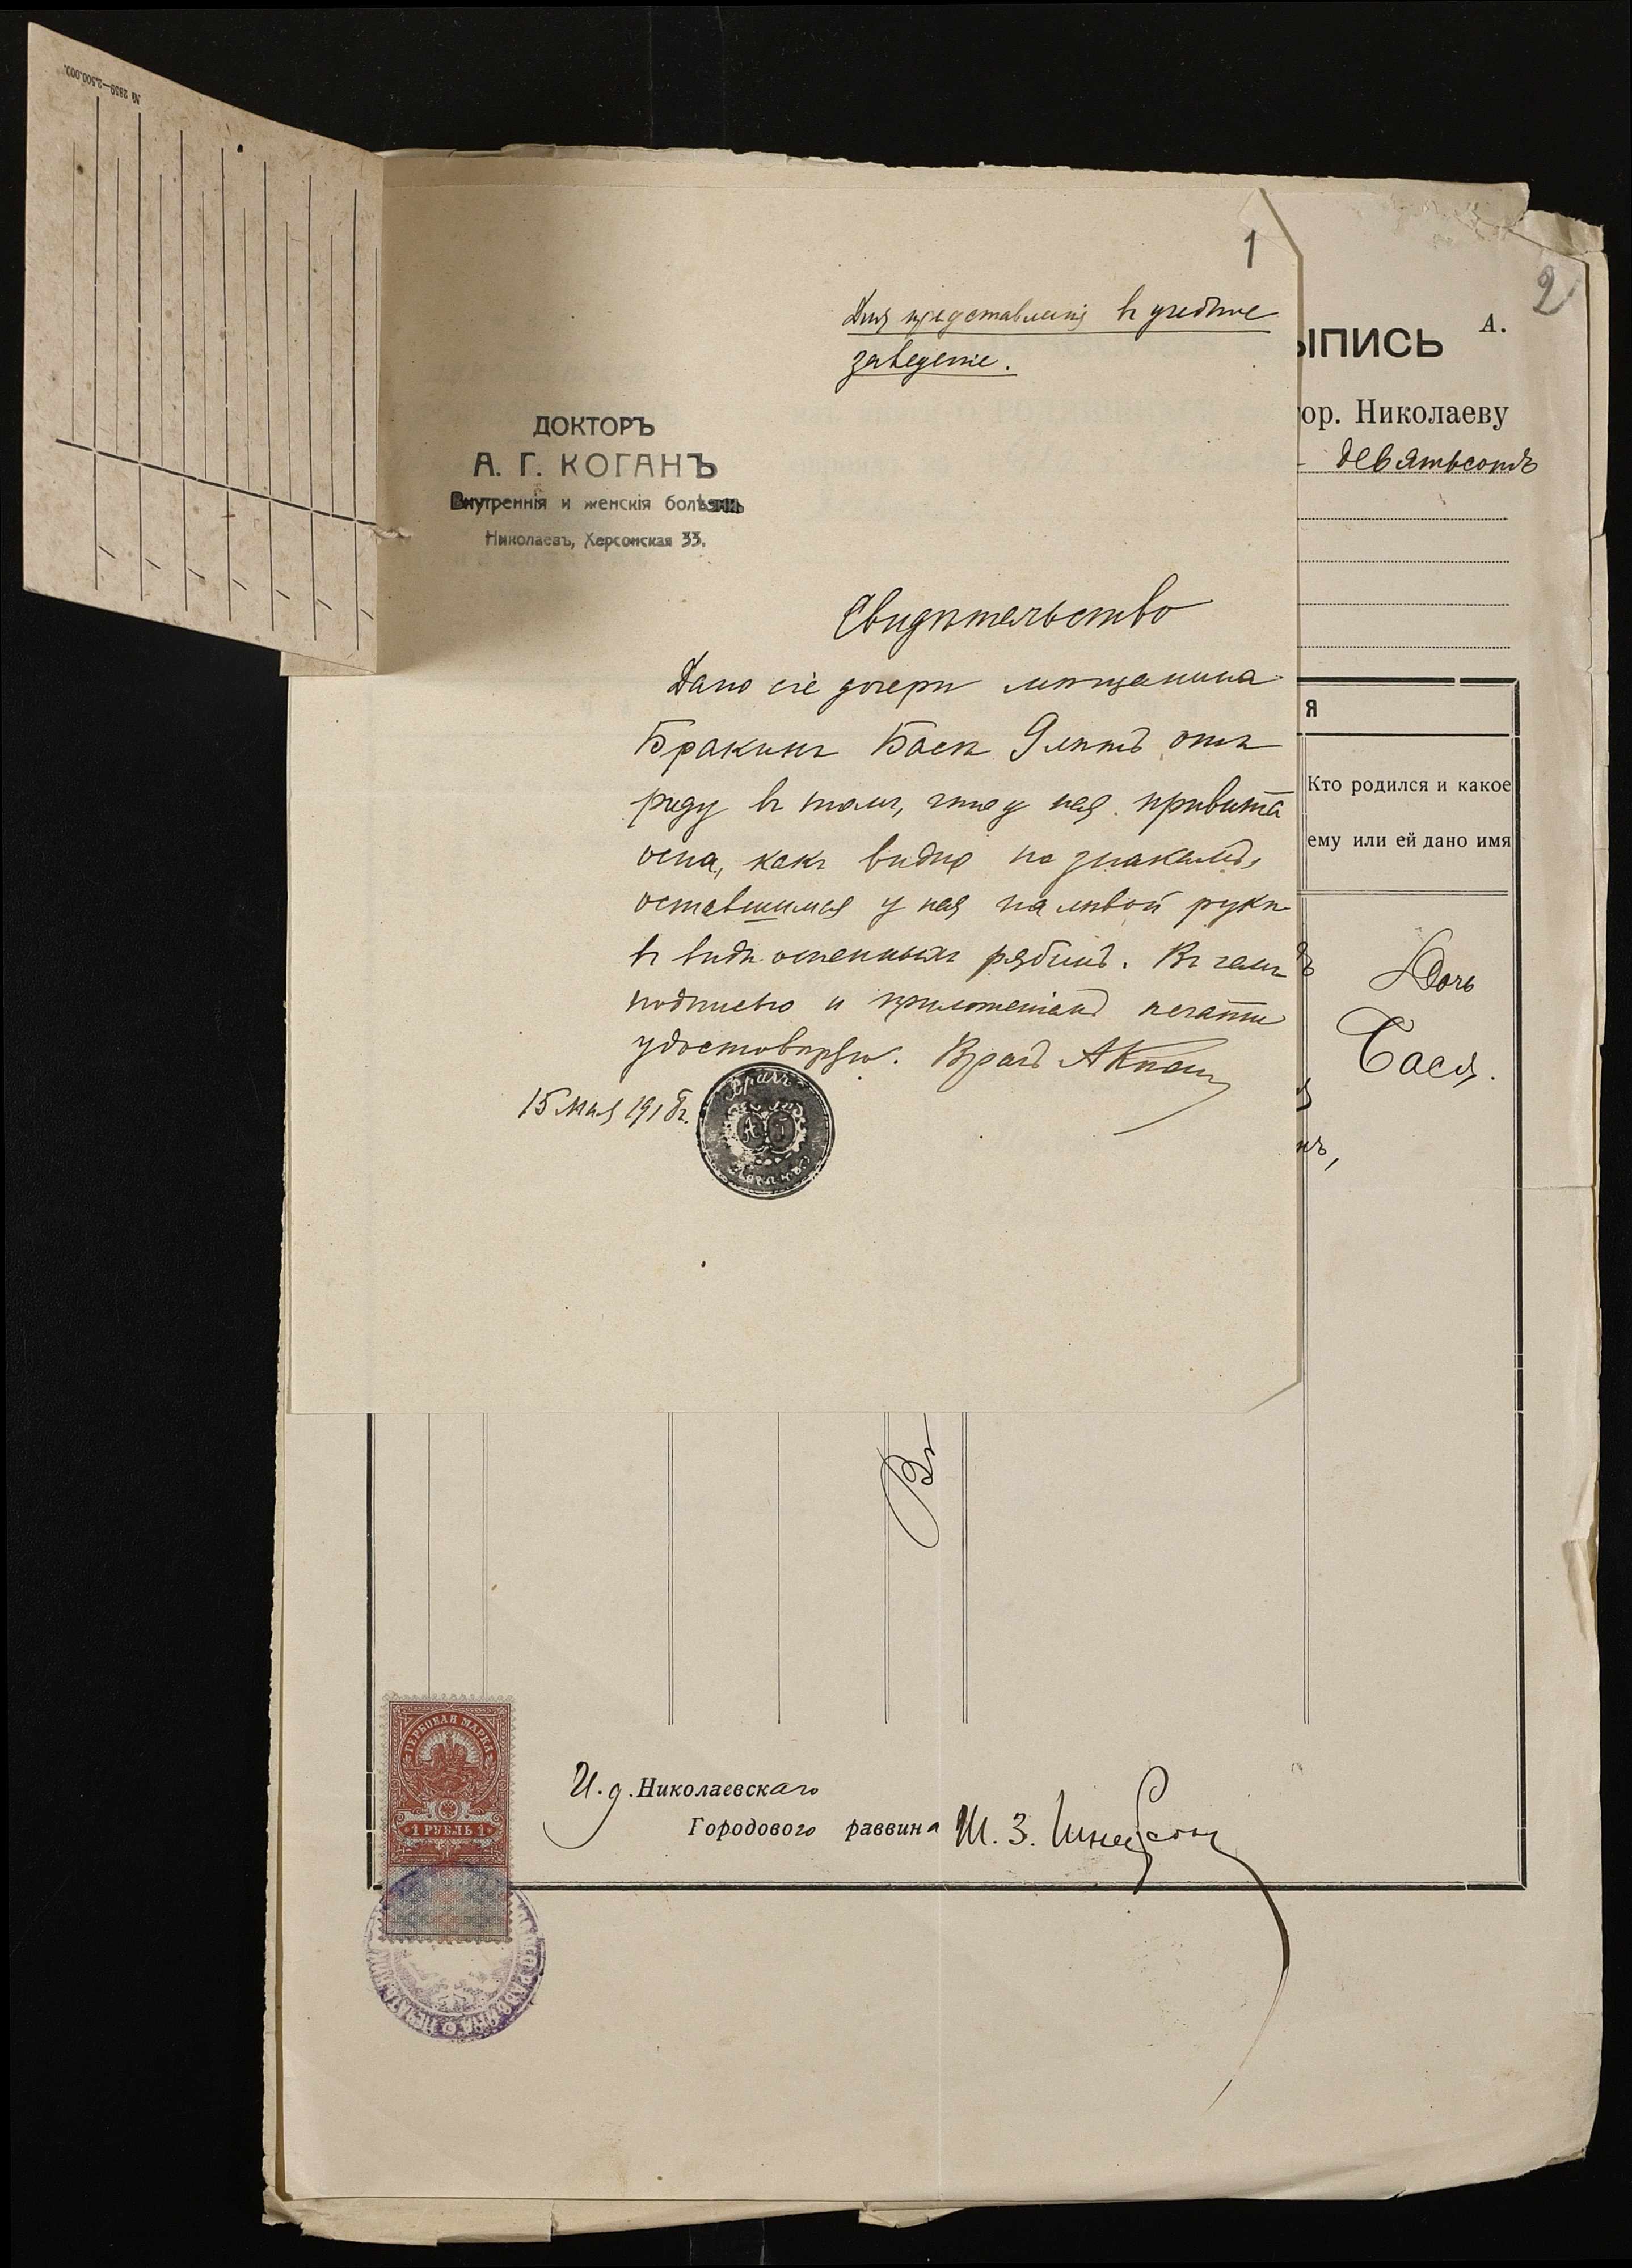 № 2839—2.500.000.
1
Для представленія въ учебное
заведеніе.
ДОКТОРЪ
А. Г. КОГАНЪ
Внутреннія и женскія болѣзни
Николаевъ, Херсонская 33.
Свидѣтельство
Дано сіе дочери мѣщанина
Бракинъ Басѣ 9 лѣтъ отъ
роду въ томъ, что у нея привита
оспа, какъ видно по знакамъ,
оставшимся у нея на лѣвой рукѣ
въ видѣ оспенныхъ рябинъ. Въ чемъ
подписью и приложеніемъ печати
удостовѣряю. Врачъ А Коганъ
15 мая 191 г.
Врачъ
А Г
Коганъ
2
ЫПИСЬ А.
гор. Николаеву
девятьсотъ
Я
Кто родился и какое
ему или ей дано имя
Дочь
Бася.
Въ
ГЕРБОВАЯ МАРКА
1 РУБЛЬ 1
И. д. Николаевскаго
Городового раввина Ш. З. Шнеерсонъ